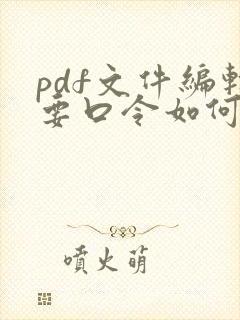 pdf文件编辑
要口令如何
噴火萌